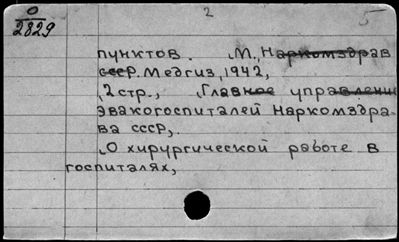 О
2829
2
5
пунктов. М., Наркомздрав
СССР. Медгиз, 1942,
2 стр., Главное управлени
эвакогоспиталей Наркомздра-
ва СССР,
О хирургической работе в
госпиталях,